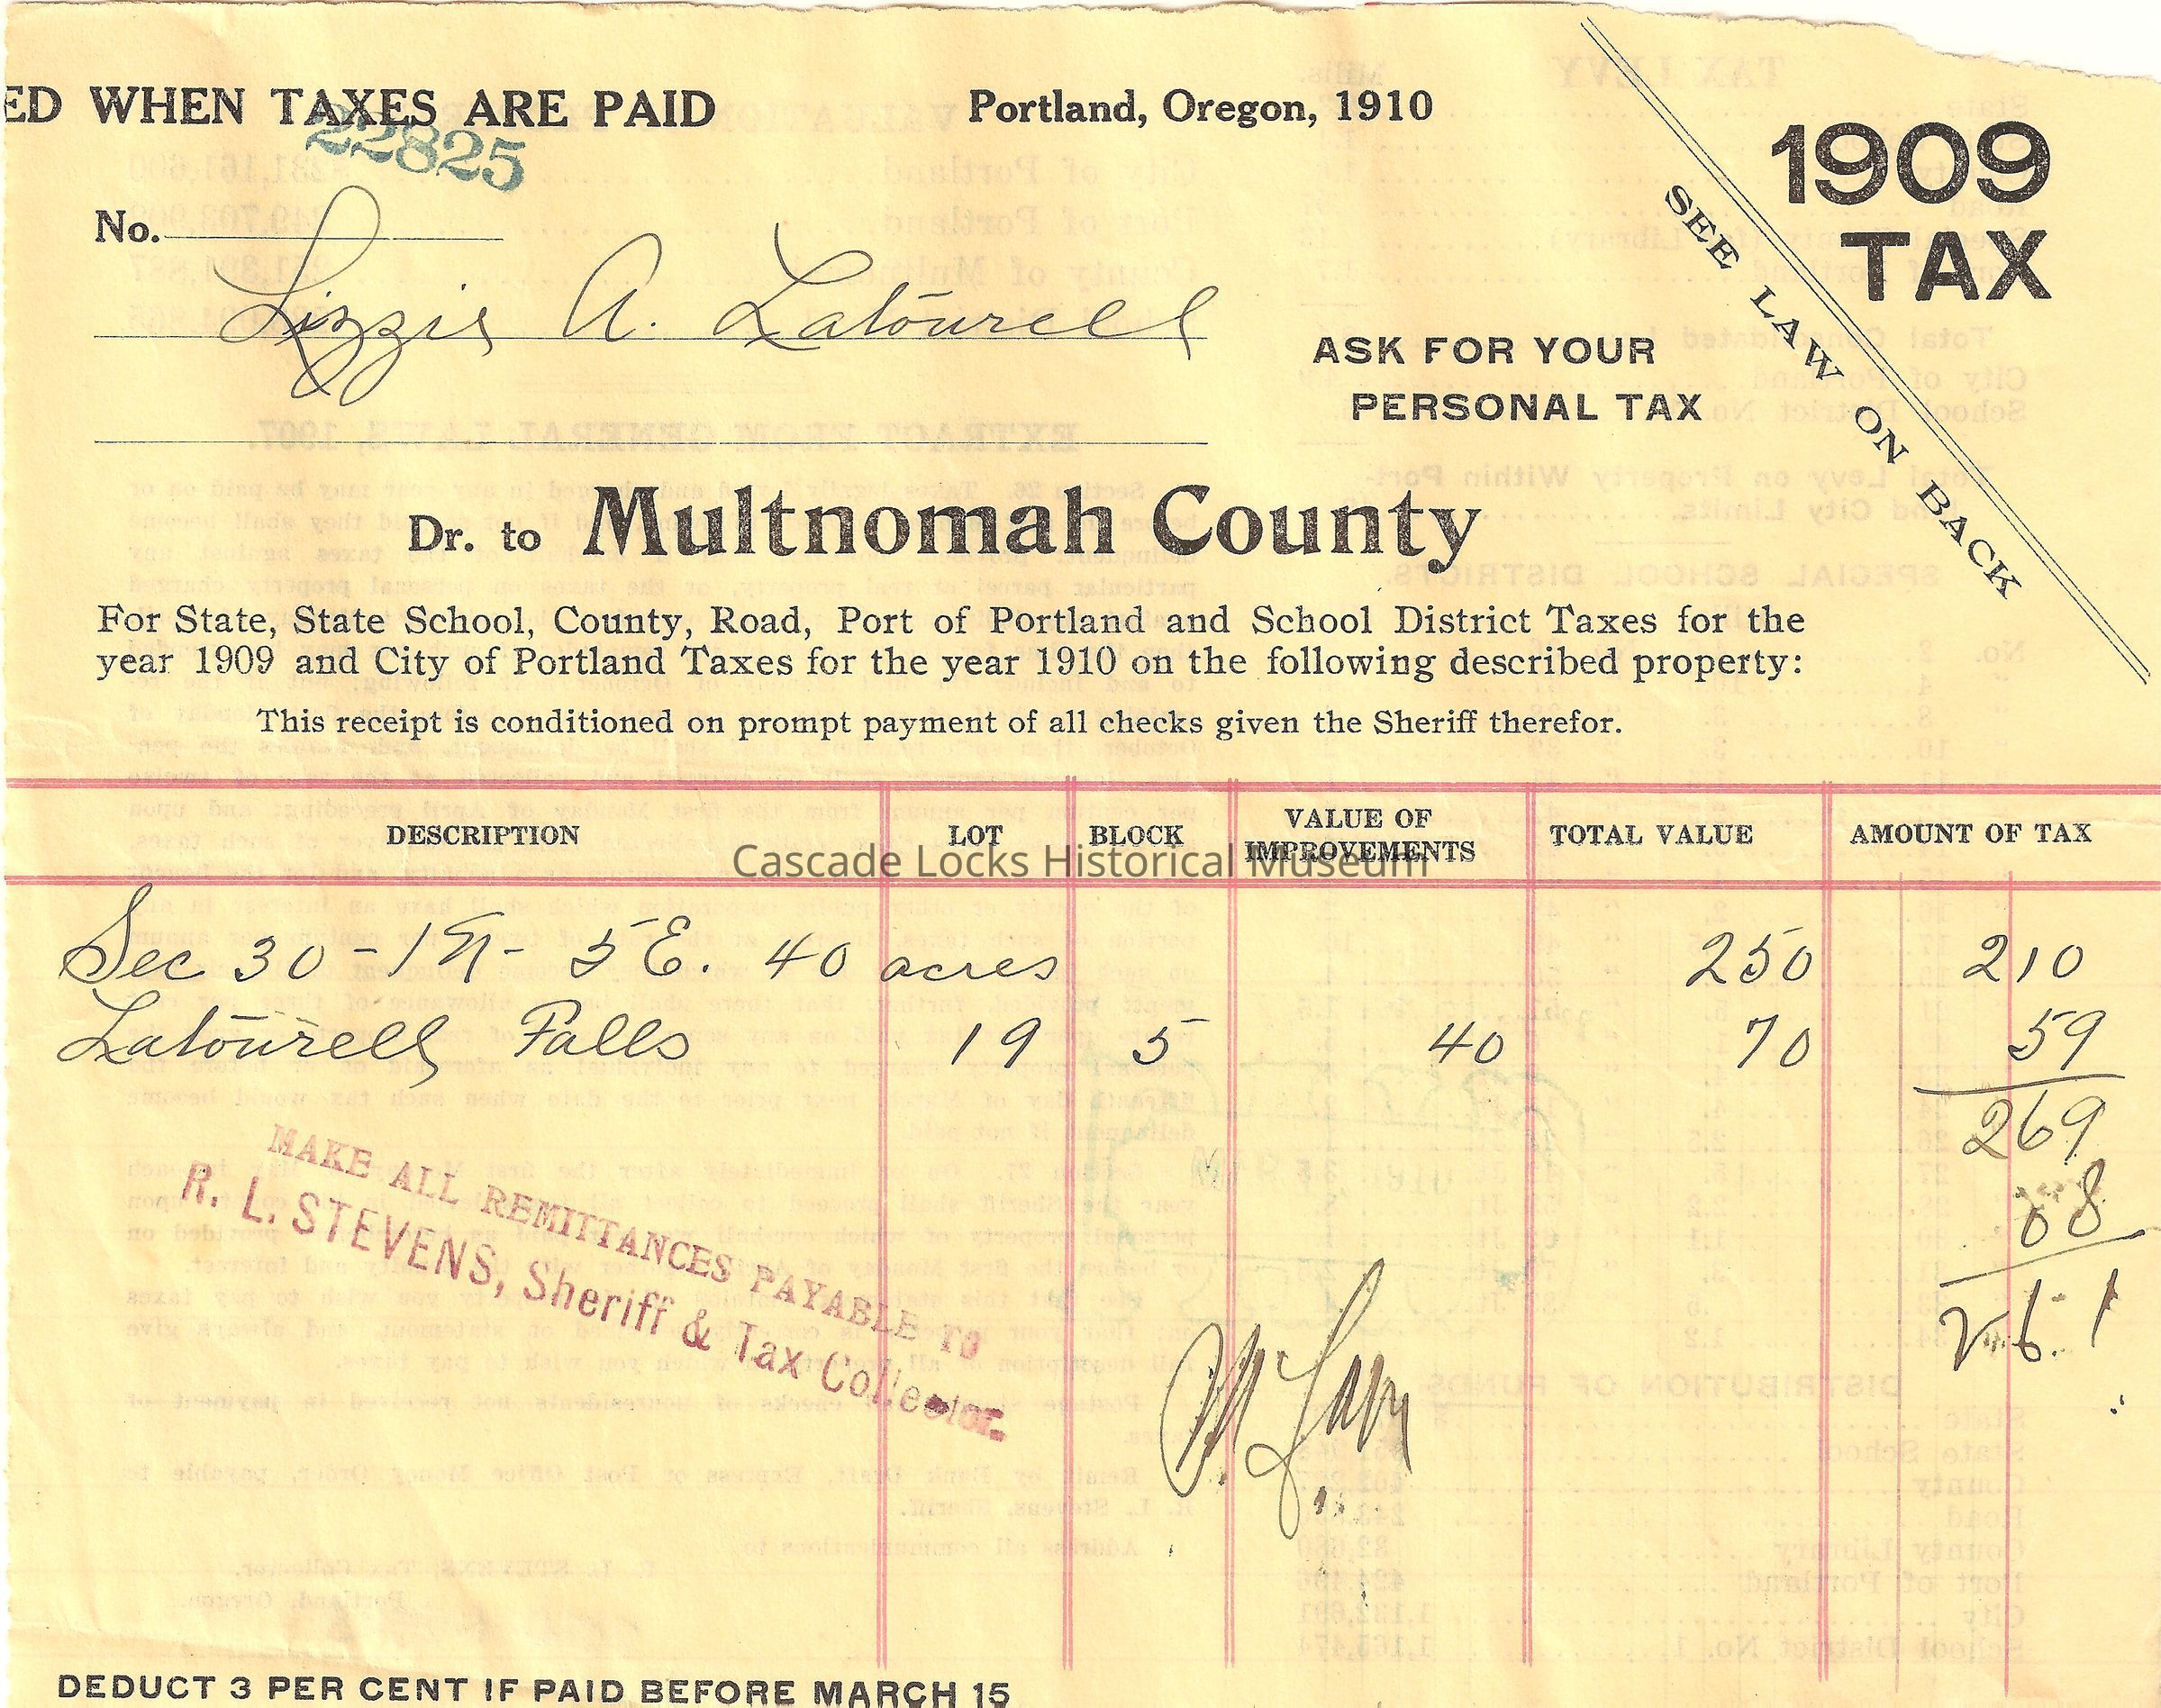 ED WHEN TAXES ARE PAID
Portland, Oregon, 1910
1909
TAX
SEE LAW ON BACK
22825
No.
Lizzie A. Latourell
ASK FOR YOUR
PERSONAL TAX
Dr. to Multnomah County
For State, State School, County, Road, Port of Portland and School District Taxes for the
year 1909 and City of Portland Taxes for the year 1910 on the following described property:
This receipt is conditioned on prompt payment of all checks given the Sheriff therefor.
DESCRIPTION LOT BLOCK VALUE OF IMPROVEMENTS TOTAL VALUE AMOUNT OF TAX
Cascade Locks Historical Museum
Sec 30 - 1N - 5E. 40 acres 250 210
Latourell Falls 19 5 40 70 59
269
08
2.61
MAKE ALL REMITTANCES PAYABLE TO
R. L. STEVENS, Sheriff & Tax Collector.
DEDUCT 3 PER CENT IF PAID BEFORE MARCH 15